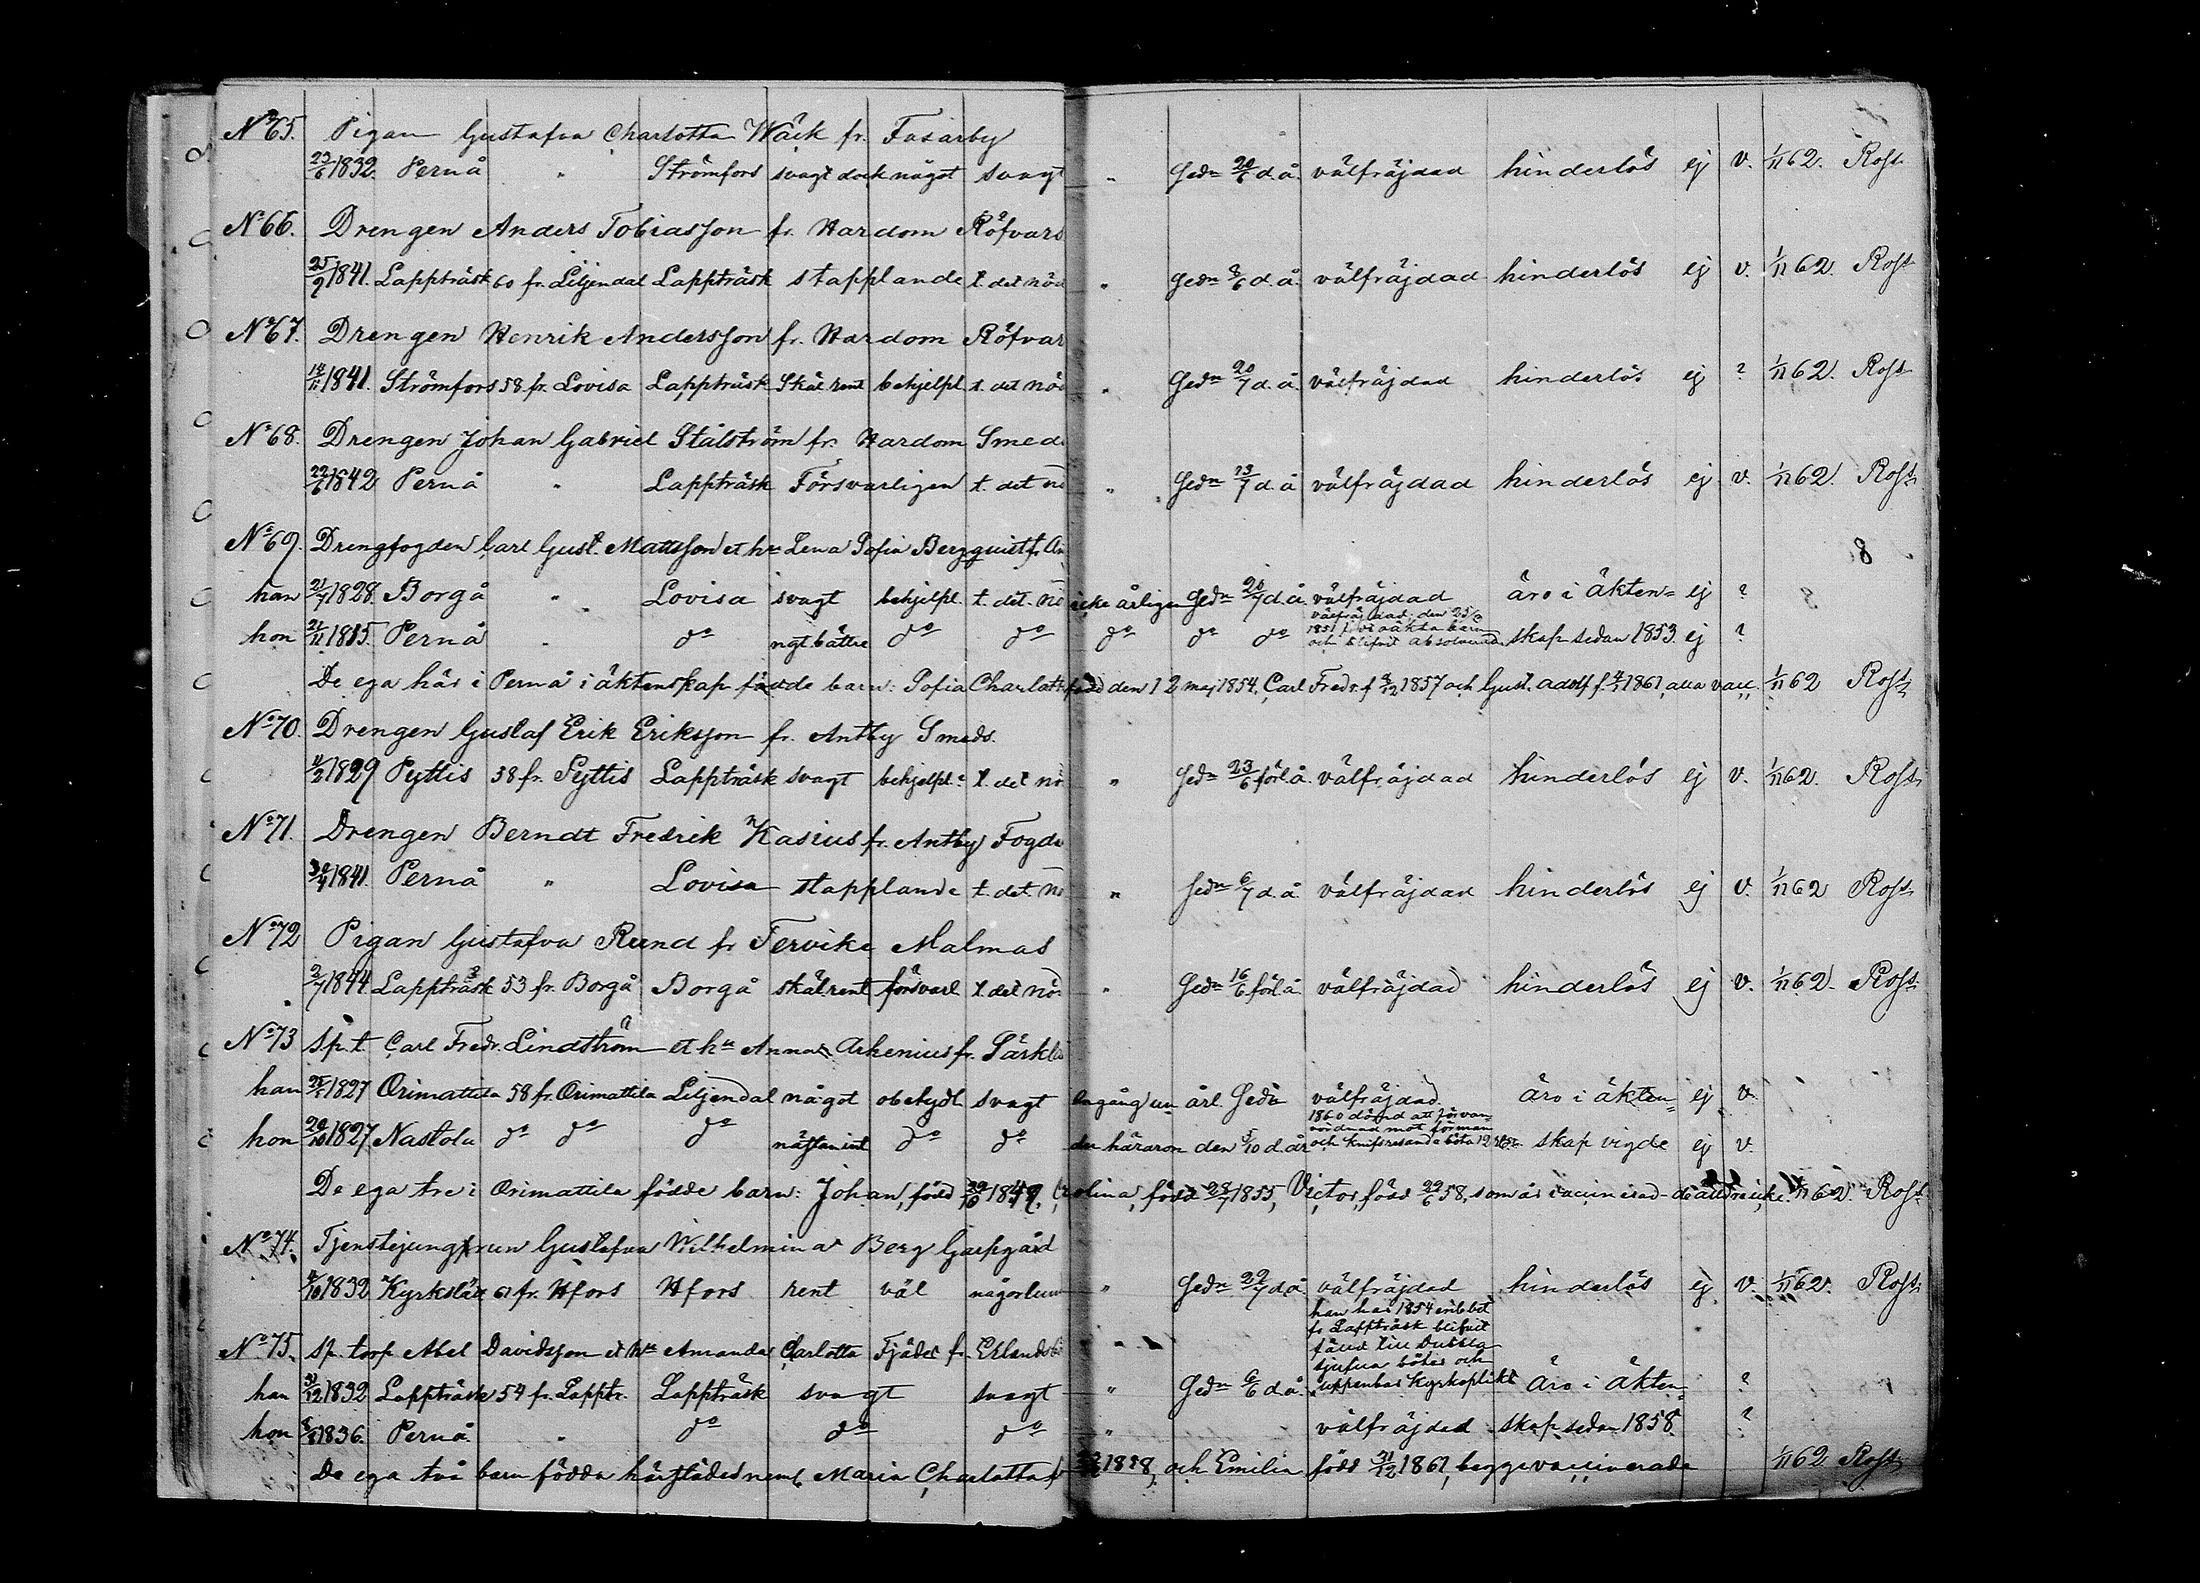 No 65. Pigan Gustafva Charlotta Wäck fr. Fasarby
23/6 1832. Pernå " Strömfors svagt dock något svagt " Gedn 20/6 d.å. välfräjdad hinderlös ej v. 1/11 62. Rosst
No 66. Drengen Anders Tobiasson fr. Hardom Röfvars
25/9 1841. Lappträsk 60 fr. Liljendal Lappträsk stapplande t. det nöd " Gedn 8/6 d.å. välfräjdad hinderlös ej v. 1/11 62. Rosst
No 67. Drengen Henrik Andersson fr. Hardom Röfvar
1841. Strömfors 58 fr. Lovisa Lappträsk Skäl. rent behjelpl t. det nöd " Gedn 20/7 d.å. välfräjdad hinderlös ej ? 1/11 62. Rosst
No 68. Drengen Johan Gabriel Stålström fr. Hardom Smeds
22/6 1842 Pernå " Lappträsk Försvarligen t. det nö " Gedn 13/7 d.å välfräjdad hinderlös ej v. 1/11 62. Rosst
8
No 69. Drengfogden Carl Gust. Mattsson et hu Lena Sofia Bergquist fr. An
han 21/7 1828. Borgå " Lovisa svagt behjelpl. t. det. nö icke årligen Gedn 20/7 d.å. välfräjdad äro i äkten= ej ?
hon 1815. Pernå " do ngt. bättre do do do do do välfräjdad, den 25/ 1851 oäkta barn och blifvit absolverad skap sedan 1853. ej ?
De ega här i Pernå i äktenskap födde barn: Sofia Charlott född den 12 maj 1854, Carl Fredr. f. 1857 och Gust. Adolf f. 1861, alla vacc. 1/11 62 Rosst
No 70. Drengen Gustaf Erik Eriksson fr. Antby Smeds.
4/2 1829 Pyttis 58 fr. Pyttis Lappträsk svagt behjelpl. t. det nö " Gedn 23/6 förl.å. välfräjdad hinderlös ej v. 1/11 62. Rosst
No 71. Drengen Berndt Fredrik Kasius fr. Antby Fogde
30/4 1841. Pernå " Lovisa stapplande t. det. nö " Gedn 6/7 d.å. välfräjdad hinderlös ej v. 1/11 62 Rosst
No 72 Pigan Gustafva Rund fr Tervike Malmas
2/7 1844 Lappträsk 53 fr. Borgå Borgå skäl. rent försvarl t. det nö " Gedn 16/6 förl.å. välfräjdad hinderlös ej v. 1/11 62. Rosst
No 73 Sp. t. Carl Fredr. Lindström et hu Anna Arhenius fr. Särkl
han 1827 Orimattila 58 fr. Orimattila Liljendal något obetydl svagt engång un årl. Gedn välfräjdad äro i äkten= ej v.
hon 20/10 1827. Nastola do do do nästan int do do den häraron den 5/10 d.år 1860 dömd att för van vördnad mot förman och knifresande böta 12 skap vigde ej v.
De ega tre i Orimattila födde barn: Johan, född 29/10 1849, Carolina, född 28/7 1855, Victor, född 29/6 58, som är vaccinerad - de andra icke. 1/11 62. Rosst
No 74. Tjenstejungfrun Gustafva Wilhelmina Berg Garpgård
4/10 1832 Kyrkslätt 61 fr. Hfors Hfors rent väl någorlun " Gedn 22/7 d.å. välfräjdad hinderlös ej v. 1/11 62. Rosst
No 75. Sp. torp. Abel Davidsson et hu Amanda Charlotta Fjäder fr. Erlandsbö " han har 1854 enl. bet fr. Lappträsk blifvit fälld till dubbla
han 31/12 1832 Lappträsk 54 fr. Lapptr. Lappträsk svagt svagt " Gedn 6/6 d.å. böter och uppenbar kyrkoplikt äro i äkten= ?
hon 1836. Pernå " do do do " välfräjdad skap sedan 1858. ?
De ega två barn födda härstädes neml. Maria Charlotta f. 1858, och Emilia född 31/12 1861, begge vaccinerade 1/11 62 Rosst